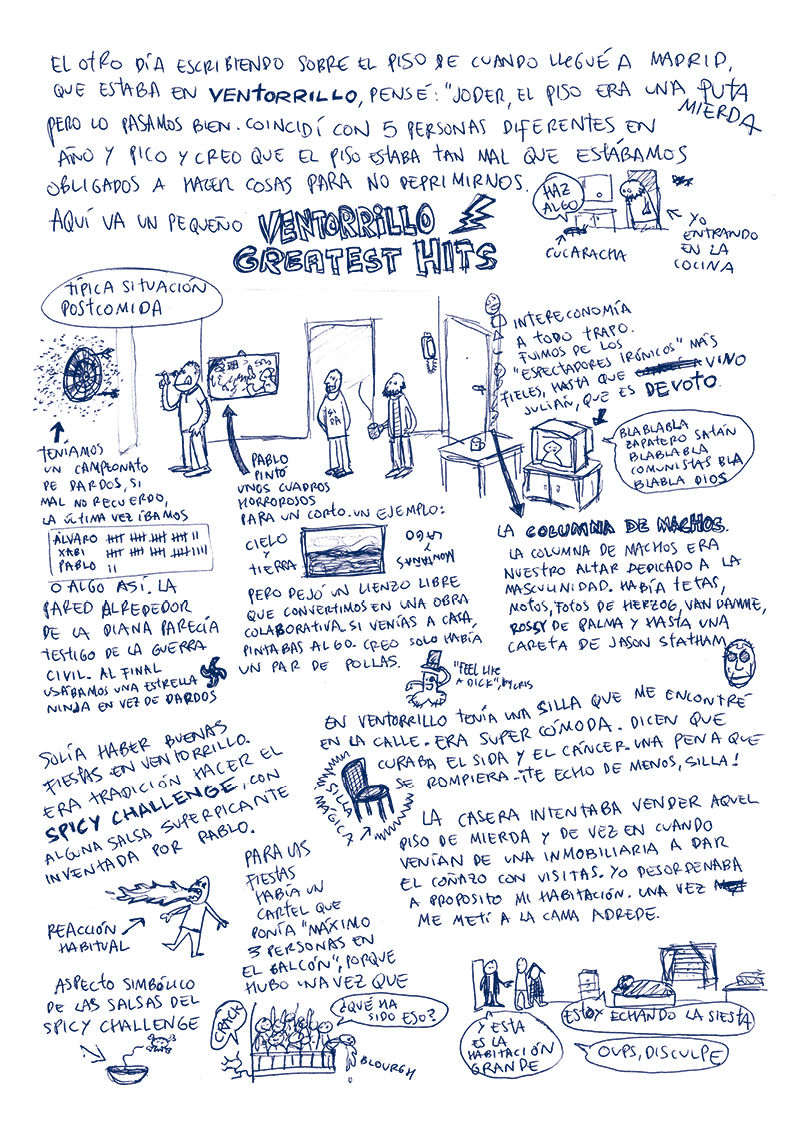 EL OTRO DÍA ESCRIBIENDO SOBRE EL PISO DE CUANDO LLEGUÉ A MADRID,
QUE ESTABA EN VENTORRILLO, PENSÉ: "JODER, EL PISO ERA UNA PUTA
MIERDA
PERO LO PASAMOS BIEN. COINCIDÍ CON 5 PERSONAS DIFERENTES EN
AÑO Y PICO Y CREO QUE EL PISO ESTABA TAN MAL QUE ESTÁBAMOS
OBLIGADOS A HACER COSAS PARA NO DEPRIMIRNOS.
AQUÍ VA UN PEQUEÑO VENTORRILLO
GREATEST HITS
HAZ
ALGO
CUCARACHA
YO
ENTRANDO
EN LA
COCINA
TÍPICA SITUACIÓN
POSTCOMIDA
SIDA
INTERECONOMÍA
A TODO TRAPO.
FUIMOS DE LOS
"ESPECTADORES IRÓNICOS" MÁS
FIELES, HASTA QUE VINO
JULIÁN, QUE ES DEVOTO.
BLABLABLA
ZAPATERO SATÁN
BLABLABLA
COMUNISTAS BLA
BLABLA DIOS
TENIAMOS
UN CAMPEONATO
DE DARDOS, SI
MAL NO RECUERDO,
LA ÚLTIMA VEZ ÍBAMOS
ÁLVARO
XABI
PABLO II
O ALGO ASÍ. LA
PARED ALREDEDOR
DE LA DIANA PARECÍA
TESTIGO DE LA GUERRA
CIVIL. AL FINAL
USÁBAMOS UNA ESTRELLA
NINJA EN VEZ DE DARDOS
PABLO
PINTÓ
UNOS CUADROS
HORROROSOS
PARA UN CORTO. UN EJEMPLO:
CIELO
Y
TIERRA
LAGO
Y
MONTAÑAS
PERO DEJÓ UN LIENZO LIBRE
QUE CONVERTIMOS EN UNA OBRA
COLABORATIVA. SI VENÍAS A CASA,
PINTABAS ALGO. CREO SOLO HABÍA
UN PAR DE POLLAS.
"FEEL LIKE
A DICK", BY CRIS
LA COLUMNA DE MACHOS.
LA COLUMNA DE MACHOS ERA
NUESTRO ALTAR DEDICADO A LA
MASCULINIDAD. HABÍA TETAS,
MOTOS, FOTOS DE HERZOG, VAN DAMME,
ROSSY DE PALMA Y HASTA UNA
CARETA DE JASON STATHAM
SOLÍA HABER BUENAS
FIESTAS EN VENTORRILLO.
ERA TRADICIÓN HACER EL
SPICY CHALLENGE, CON
ALGUNA SALSA SUPERPICANTE
INVENTADA POR PABLO.
REACCIÓN
HABITUAL
ASPECTO SIMBÓLICO
DE LAS SALSAS DEL
SPICY CHALLENGE
EN VENTORRILLO TENÍA UNA SILLA QUE ME ENCONTRÉ
EN LA CALLE. ERA SUPER CÓMODA. DICEN QUE
CURABA EL SIDA Y EL CÁNCER. UNA PENA QUE
SE ROMPIERA. ¡TE ECHO DE MENOS, SILLA!
SILLA
MÁGICA
PARA LAS
FIESTAS
HABÍA UN
CARTEL QUE
PONÍA "MÁXIMO
3 PERSONAS EN
EL BALCÓN", PORQUE
HUBO UNA VEZ QUE
CRACK
¿QUÉ HA
SIDO ESO?
BLOURGH
LA CASERA INTENTABA VENDER AQUEL
PISO DE MIERDA Y DE VEZ EN CUANDO
VENÍAN DE UNA INMOBILIARIA A DAR
EL COÑAZO CON VISITAS. YO DESORDENABA
A PROPOSITO MI HABITACIÓN. UNA VEZ
ME METÍ A LA CAMA ADREDE.
Y ESTA
ES LA
HABITACIÓN
GRANDE
ESTOY ECHANDO LA SIESTA
OUPS, DISCULPE